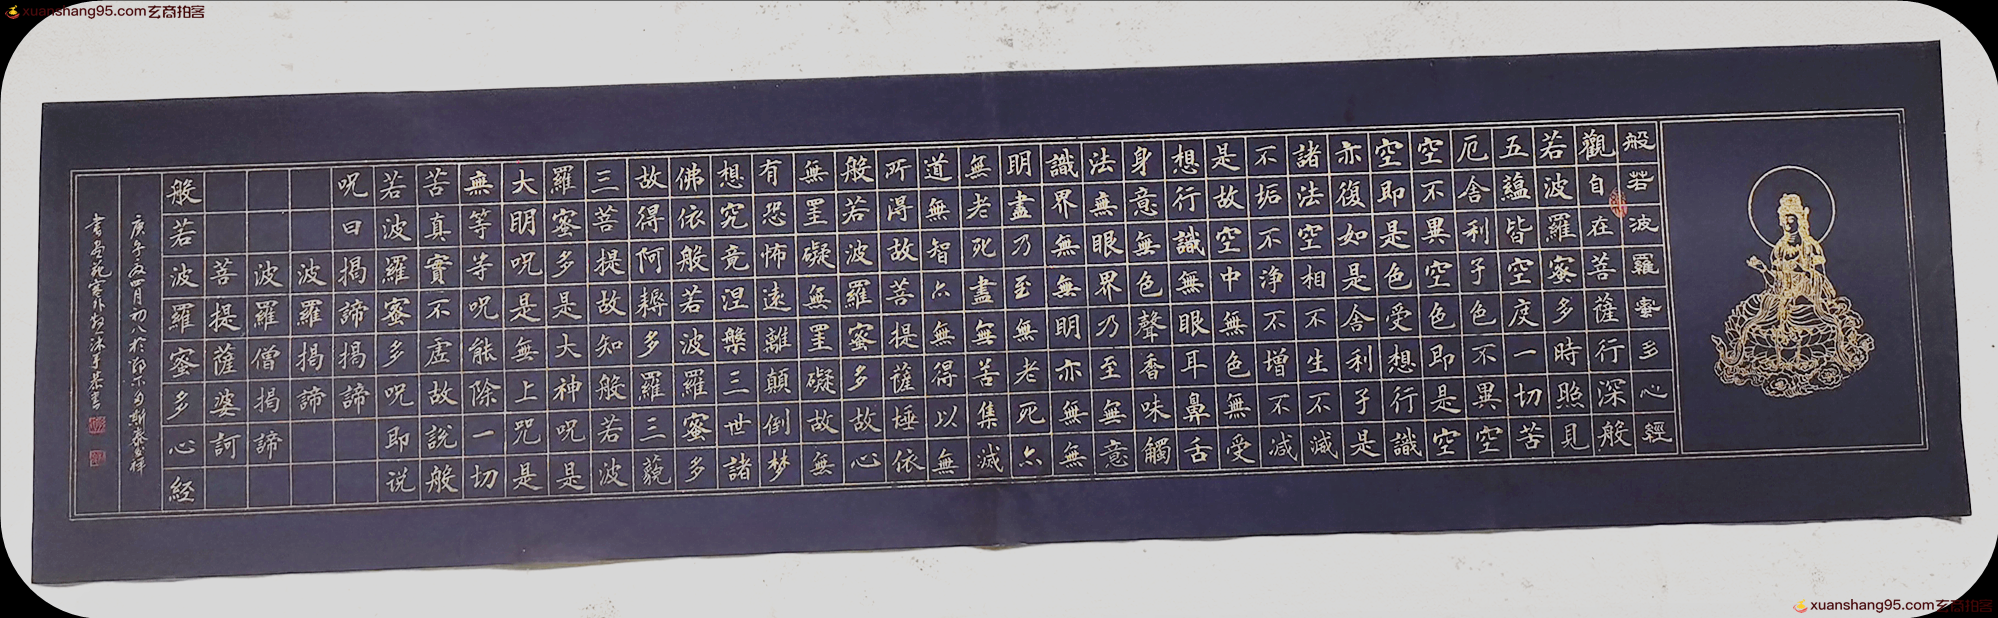 xuanshang95.com玄商拍客
般若波羅蜜多心經
觀自在菩薩行深般
若波羅蜜多時照見
五蘊皆空度一切苦
厄舍利子色不異空
空不異空色即是空
空即是色受想行識
亦復如是舍利子是
諸法空相不生不滅
不垢不浄不增不減
是故空中無色無受
想行識無眼耳鼻舌
身意無色聲香味觸
法無眼界乃至無意
識界無無明亦無無
明盡乃至無老死亦
無老死盡無苦集滅
道無智亦無得以無
所得故菩提薩埵依
般若波羅蜜多故心
無罣礙無罣礙故無
有恐怖遠離顛倒梦
想究竟涅槃三世諸
佛依般若波羅蜜多
故得阿耨多羅三藐
三菩提故知般若波
羅蜜多是大神呪是
大明呪是無上咒是
無等等呪能除一切
苦真實不虛故說般
若波羅蜜多呪即说
呪曰揭諦揭諦
波羅揭諦
波羅僧揭諦
菩提薩婆訶
般若波羅蜜多心经
庚午 四月初八於
沐手恭書
xuanshang95.com玄商拍客